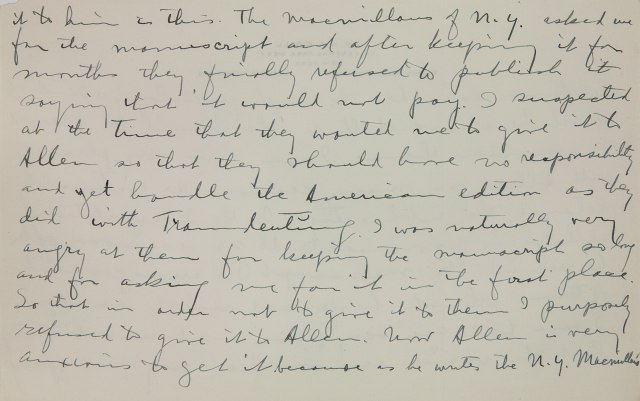 it to him is this. The Macmillans of N.Y. asked me
for the manuscript and after keeping it for
months they finally refused to publish it
saying that it would not pay. I suspected
at the time that they wanted me to give it to
Allen so that they should have no responsibility
and yet handle the American edition as they
did with Traumdeutung. I was naturally very
angry at them for keeping the manuscript so long
and for asking me for it in the first place.
So that in order not to give it to them I purposely
refused to give it to Allen. Now Allen is very
anxious to get it because as he writes the N.Y. Macmillans